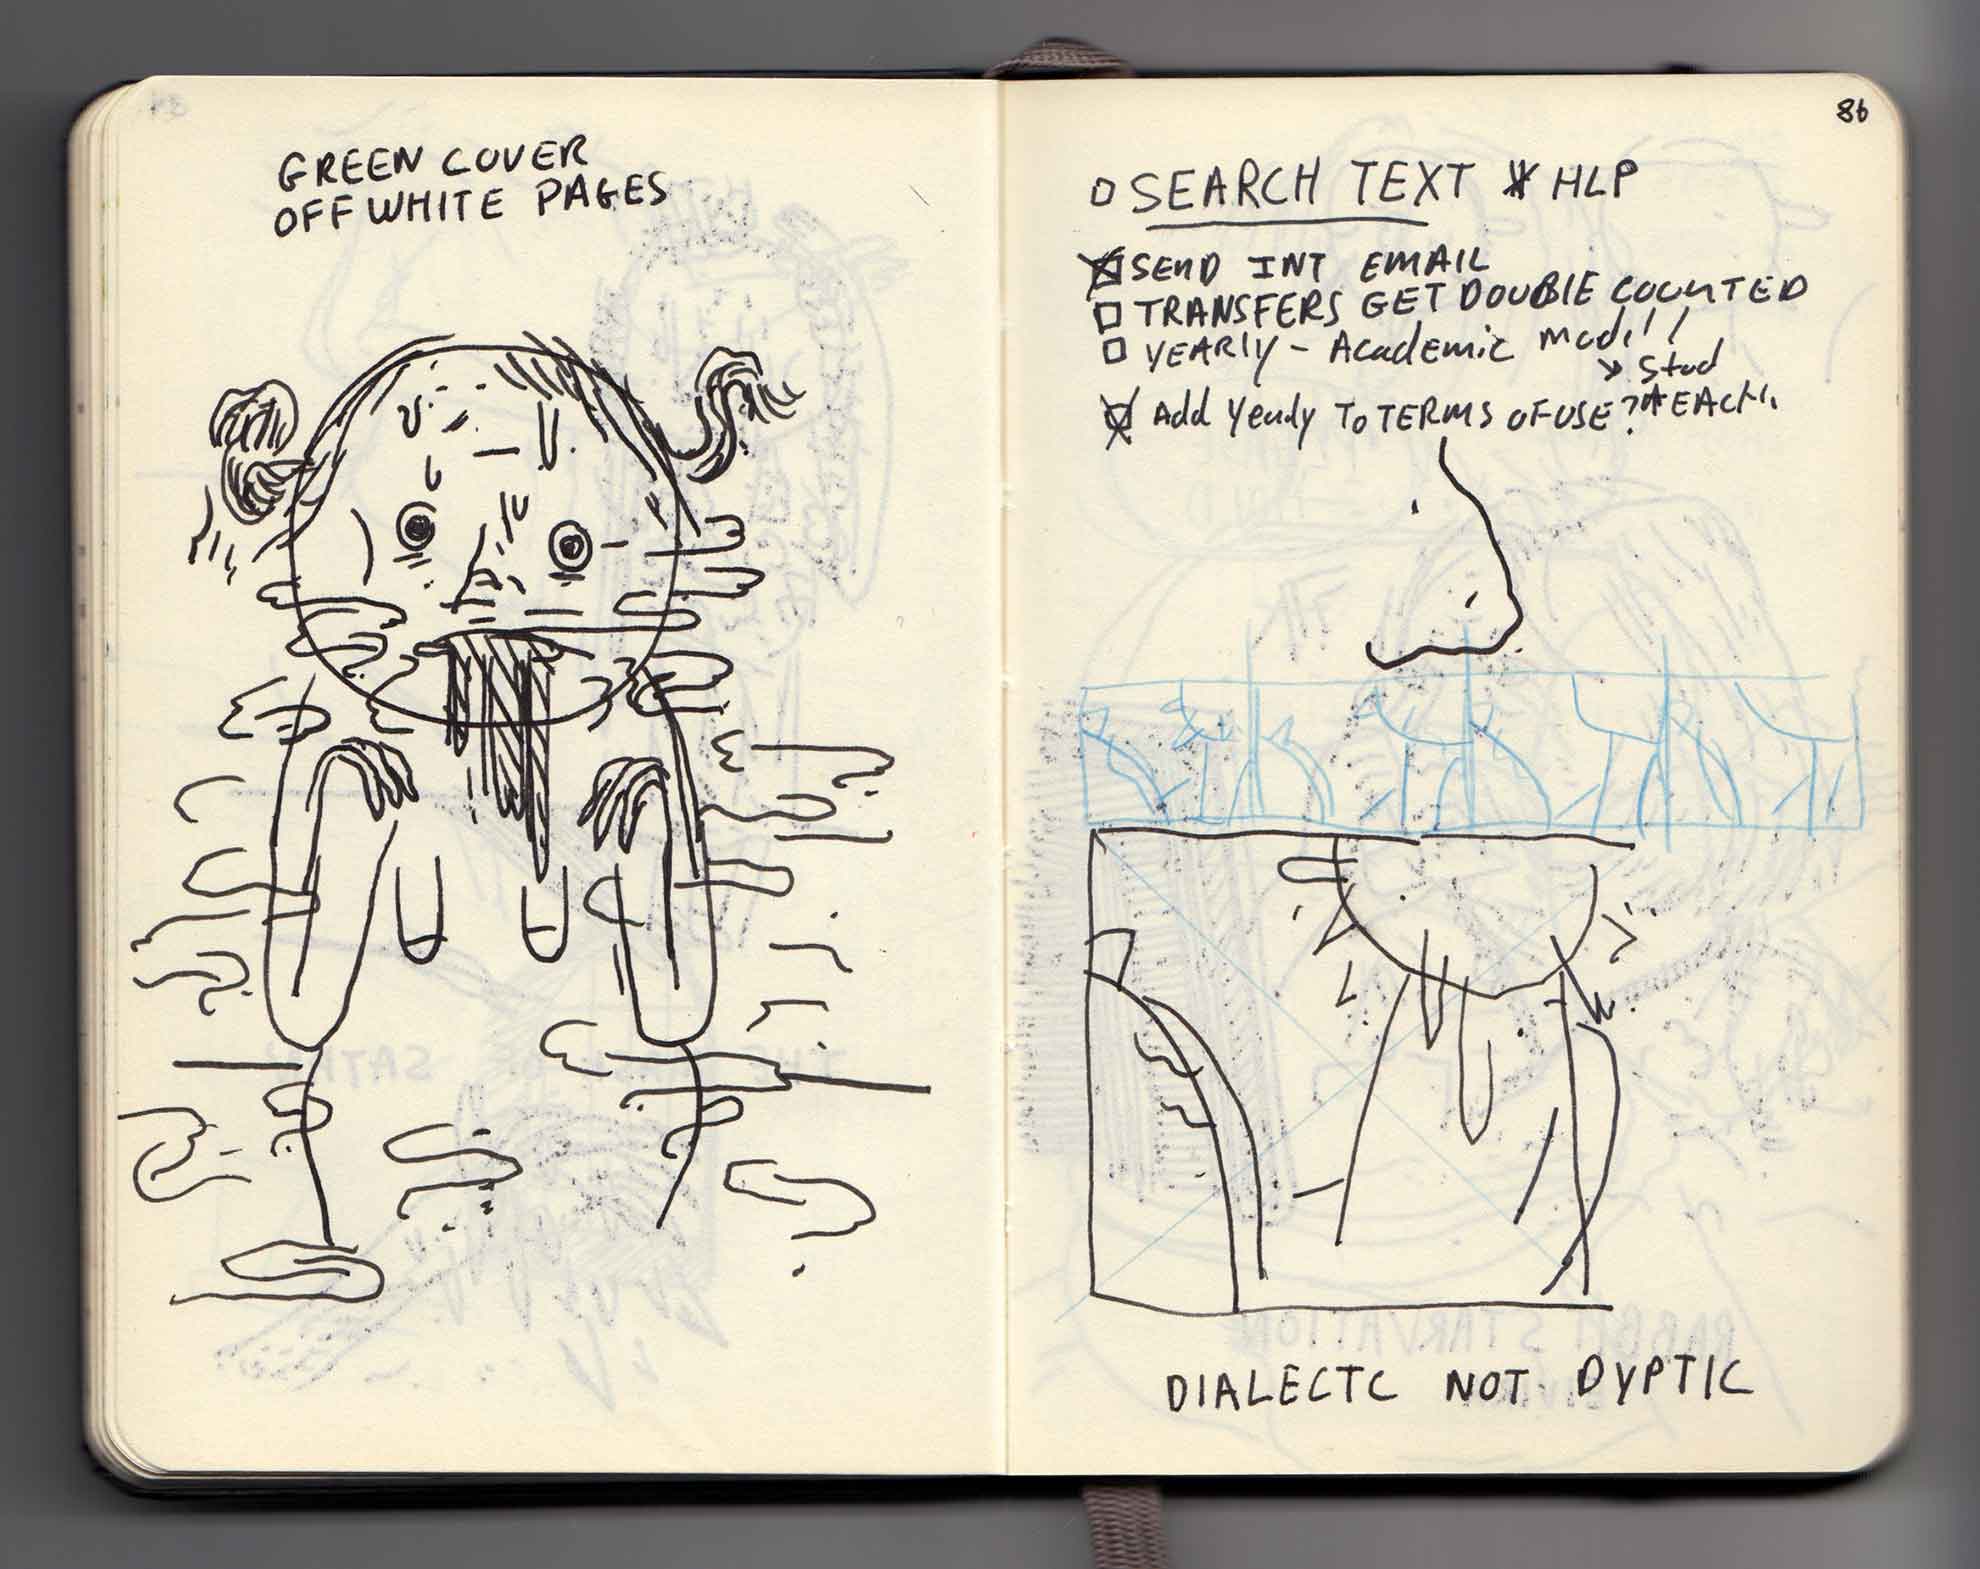 GREEN COVER
OFF WHITE PAGES
86
SEARCH TEXT * HLP
SEND INT EMAIL
TRANSFERS GET DOUBLE COUNTED
YEARLY - Academic
→ Stud
Add Yearly To TERMS OF USE?
DIALECTC NOT DYPTIC